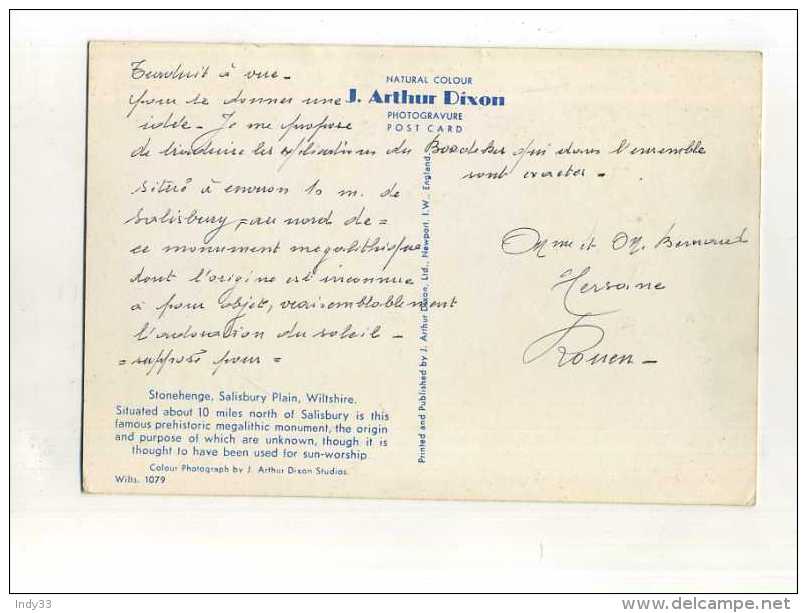 Traduit à vue -
pour te donner une
idée - Je me propose
de traduire les explications du Baedeker qui dans l'ensemble
sont exactes -
Situé à environ 10 m. de
Salisbury, au nord de =
ce monument mégalithique
dont l'origine est inconnue
à pour objet, vraisemblablement
l'adoration du soleil -
= supposé pour =
NATURAL COLOUR
J. Arthur Dixon
PHOTOGRAVURE
POST CARD
Printed and Published by J. Arthur Dixon, Ltd., Newport, I.W., England.
Mme et M. Bernard
Rouen -
Stonehenge, Salisbury Plain, Wiltshire.
Situated about 10 miles north of Salisbury is this
famous prehistoric megalithic monument, the origin
and purpose of which are unknown, though it is
thought to have been used for sun-worship
Colour Photograph by J. Arthur Dixon Studios.
Wilts. 1079
Indy33
delcampe.net